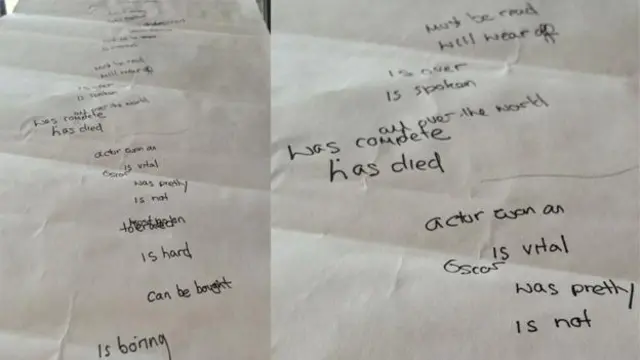 must be read
will wear off
is over
is spoken
all over the world
was complete
has died
actor won an
is vital
Oscar
was pretty
is not
tolerated
is hard
can be bought
Is boring
must be read
will wear off
is over
is spoken
all over the world
was complete
has died
actor won an
is vital
Oscar
was pretty
is not